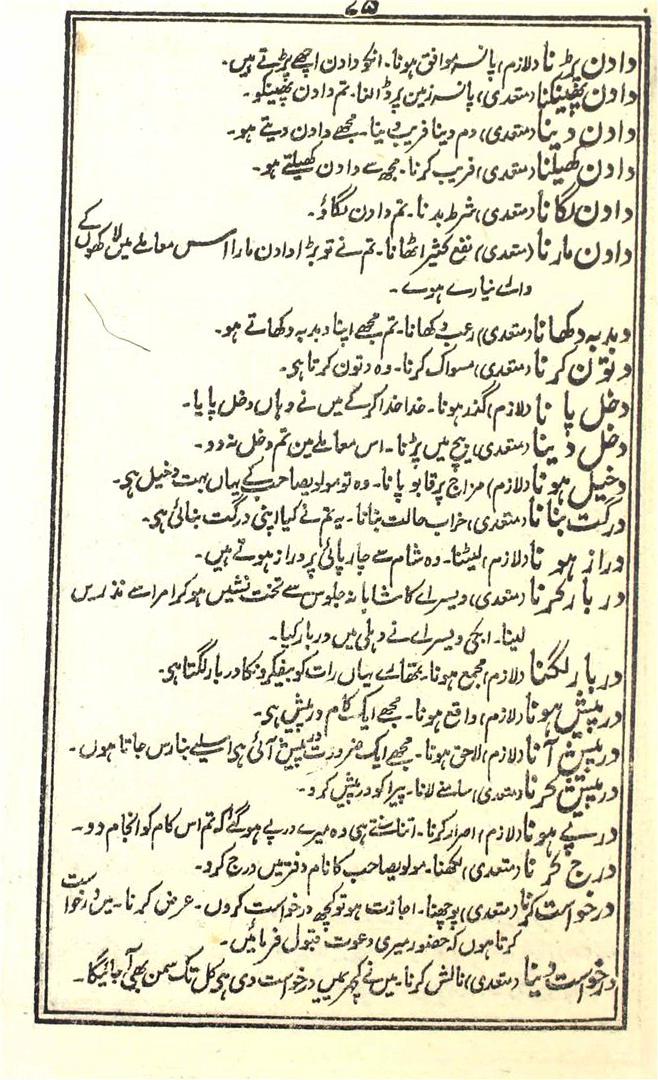 ۷۵
داون پڑنا (لازم) پانسہ موافق ہونا۔ انکو داون اچھے پڑتے ہیں۔
داون پھینکنا (متعدی) پانسہ زمین پر ڈالنا۔ تم داون پھینکو۔
داون دینا (متعدی) دم دینا فریب دینا۔ مجھے داون دیتے ہو۔
داون کھیلنا (متعدی) فریب کرنا۔ مجھ سے داون کھیلتے ہو۔
داون لگانا (متعدی) شرط بدنا۔ تم داون لگاؤ۔
داون مارنا (متعدی) نفع کثیر اٹھانا۔ تم نے تو بڑا داون مارا اس معاملے میں لاکھوں کے
وارے نیارے ہوے۔
دبدبہ دکھانا (متعدی) رعب دکھانا۔ تم مجھے اپنا دبدبہ دکھاتے ہو۔
دنتون کرنا (متعدی) مسواک کرنا۔ وہ دتون کرتا ہی۔
دخل پانا (لازم) گذر ہونا۔ خدا خدا کرکے میں نے وہاں دخل پایا۔
دخل دینا (متعدی) بیچ میں پڑنا۔ اس معاملے مین تم دخل نہ دو۔
دخیل ہونا (لازم) مزاج پر قابو پانا۔ وہ تو مولویصاحب کے یہاں بہت دخیل ہی۔
درگت بنانا (متعدی) خراب حالت بنانا۔ یہ تم نے کیا اپنی درگت بنائی ہی۔
دراز ہونا (لازم) لیٹنا۔ وہ شام سے چارپائی پر دراز ہوتے ہیں۔
دربار کرنا (متعدی) ویسراے کا شاہانہ جلوس سے تخت نشیں ہو کر امرا سے نذریں
لینا۔ ابکی ویسراے نے دہلی میں دربار کیا۔
دربار لگنا (لازم) مجمع ہونا۔ تمھارے یہاں رات کو بیفکرونکا دربار لگتا ہی۔
درپیش ہونا (لازم) واقع ہونا۔ مجھے ایک کام درپیش ہی۔
درپیش آنا (لازم) لاحق ہونا۔ مجھے ایک ضرورت درپیش آئی ہی اسیلے بنارس جاتا ہوں۔
درپیش کرنا (متعدی) سامنے لانا۔ پیرا کو درپیش کرو۔
درپے ہونا (لازم) اصرار کرنا۔ اتنا سنتے ہی وہ میرے درپے ہوگئے کہ تم اس کام کو انجام دو۔
درج کرنا (متعدی) لکھنا۔ مولویصاحب کا نام دفتر میں درج کرو۔
درخواست کرنا (متعدی) پوچھنا۔ اجازت ہو تو کچھ درخواست کروں۔ عرض کرنا۔ میں درخواست
کرتا ہوں کہ حضور میری دعوت قبول فرمائیں۔
درخواست دینا (متعدی) نالش کرنا۔ میں نے کچہری میں درخواست دی ہی کل تک سمن بھی آجائیگا۔